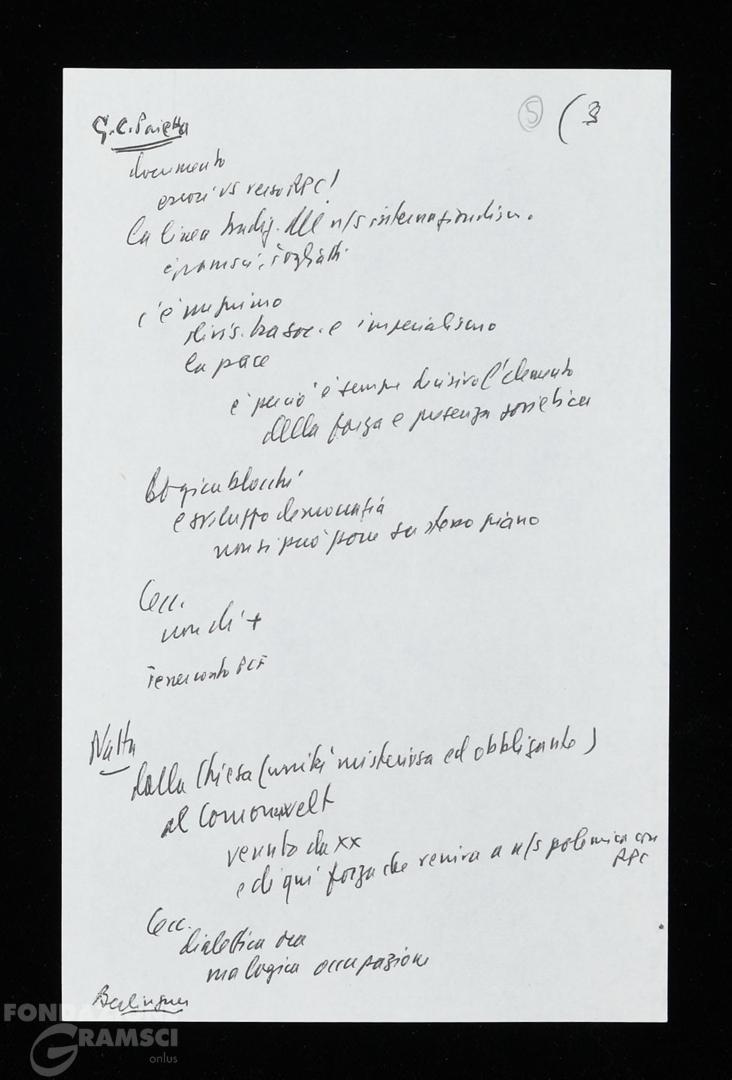 5 (3
G.C. Pajetta
documento
errori vs verso RPC!
la linea tradiz. del n/s internazionalism.
Gramsci, Togliatti
c'è un primo
divis. tra soc. e imperialismo
la pace
e perciò è sempre decisivo l'elemento
della forza e potenza sovietica
logica blocchi
e sviluppo democrazia
non si può porre su stesso piano
Cecc.
non di +
tener conto PCF
Natta
dalla Chiesa (unità misteriosa ed obbligante)
al Comonwelt
venuto da xx
e di qui forza che veniva a n/s polemica con
RPC
Cecc.
dialettica
ma logica occupazione
Berlinguer
FONDAZ
GRAMSCI
onlus